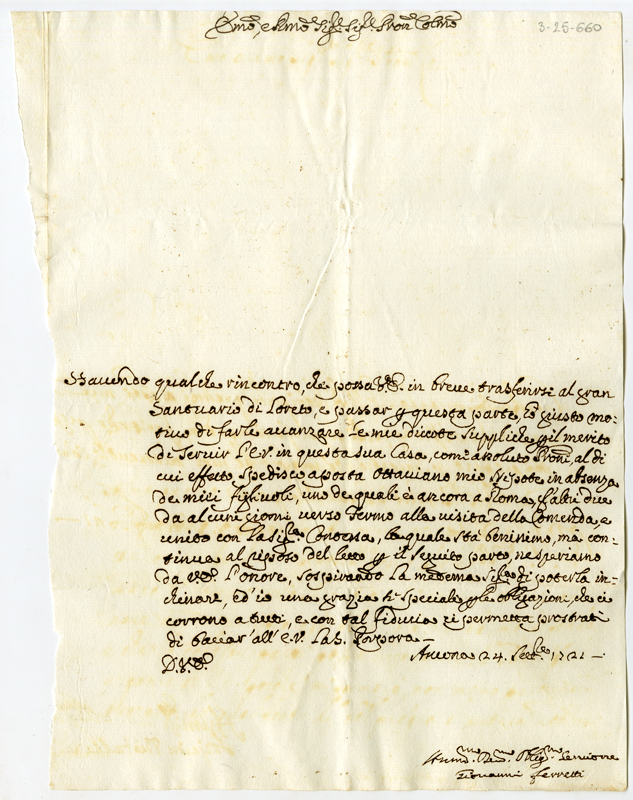 Emo, e Rmo Sigr. Sigr. Pron Colmo
3-25-660
Havendo qualche rincontro, che possa V.E. in breve trasferirsi al gran
Santuario di Loreto, e passar p questa parte, hò giusto mo-
tivo di farle avanzare le mie divote suppliche p il merito
di servir l'E.V. in questa sua Casa, come assoluto Prone, al di
cui effetto spedisco aposta Ottaviano mio Nipote in absenza
de miei figlivoli, uno de quali è ancora a Roma, l'altri due
da alcuni giorni verso Fermo alla visita della Comenda, e
unito con la Sigra. Contessa, la quale stà benissimo, mà con-
tinua al riposo del letto p il seguito parto, ne speriamo
da V.E. l'onore, sospirando la medema Sigra di poterla in-
chinare, ed io una grazia sì speciale p le obligazioni, che ci
corrono a tutti, e con tal fiducia ci permetta prostrati
di baciar' all' E.V. la S. Porpora
D. V. E.
Ancona 24. Sette. 1721
Humo. Devo. Obligmo Servitore
Giovanni Ferretti